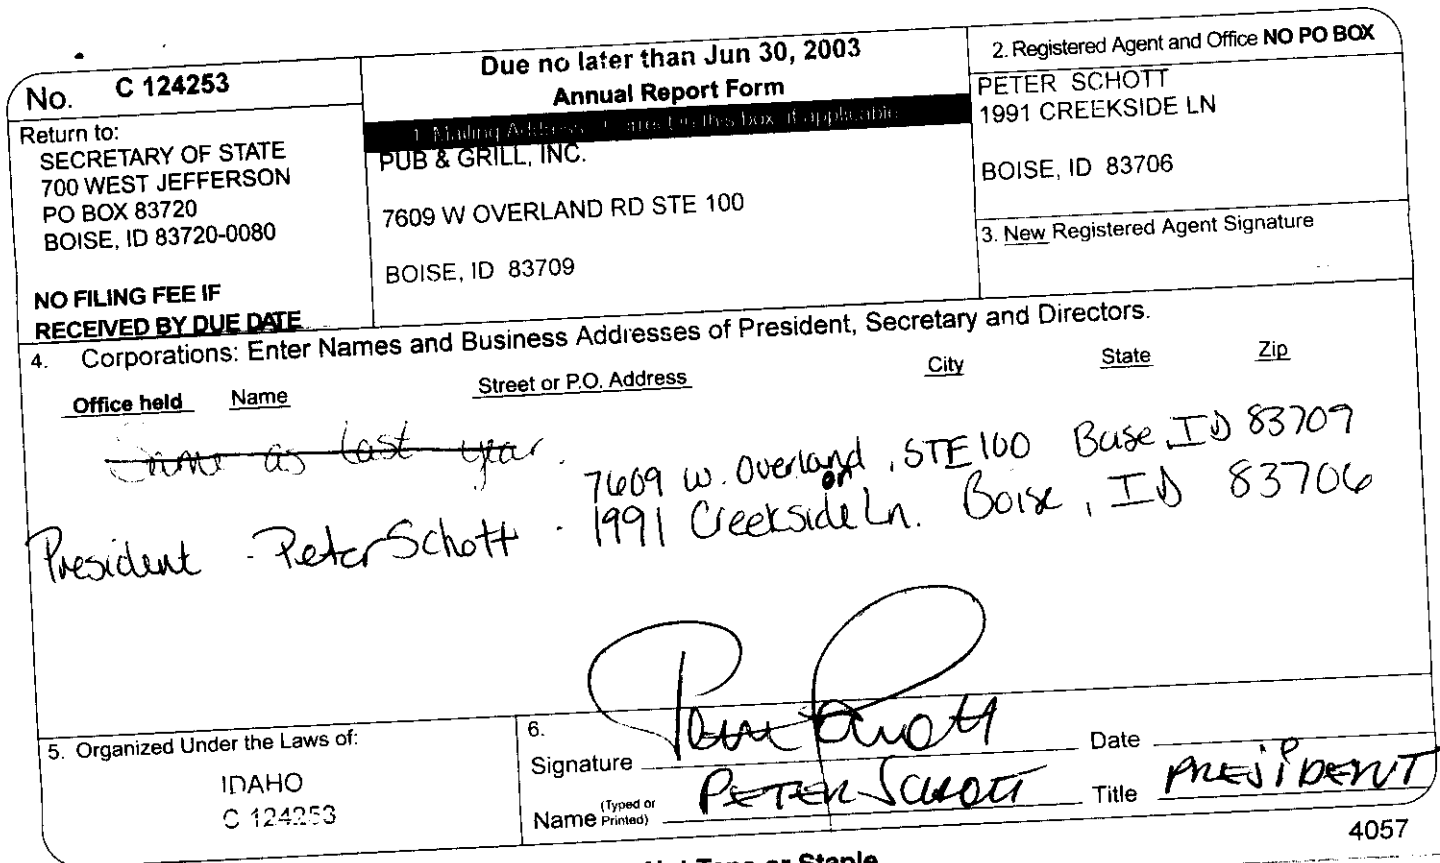 No. C 124253
Return to:
SECRETARY OF STATE
700 WEST JEFFERSON
PO BOX 83720
BOISE, ID 83720-0080
NO FILING FEE IF
RECEIVED BY DUE DATE
Due no later than Jun 30, 2003
Annual Report Form
1. Mailing Address: Correct in this box, if applicable
PUB & GRILL, INC.
7609 W OVERLAND RD STE 100
BOISE, ID 83709
2. Registered Agent and Office NO PO BOX
PETER SCHOTT
1991 CREEKSIDE LN
BOISE, ID 83706
3. New Registered Agent Signature
4. Corporations: Enter Names and Business Addresses of President, Secretary and Directors.
Office held Name Street or P.O. Address City State Zip
Same as last year.
7609 W. Overland, STE 100 Boise, ID 83709
or
President - Peter Schott - 1991 Creekside Ln. Boise, ID 83706
5. Organized Under the Laws of:
IDAHO
C 124253
6.
Signature Peter Schott Date
Name (Typed or Printed) PETER SCHOTT Title PRESIDENT
4057
Not Tape or Staple